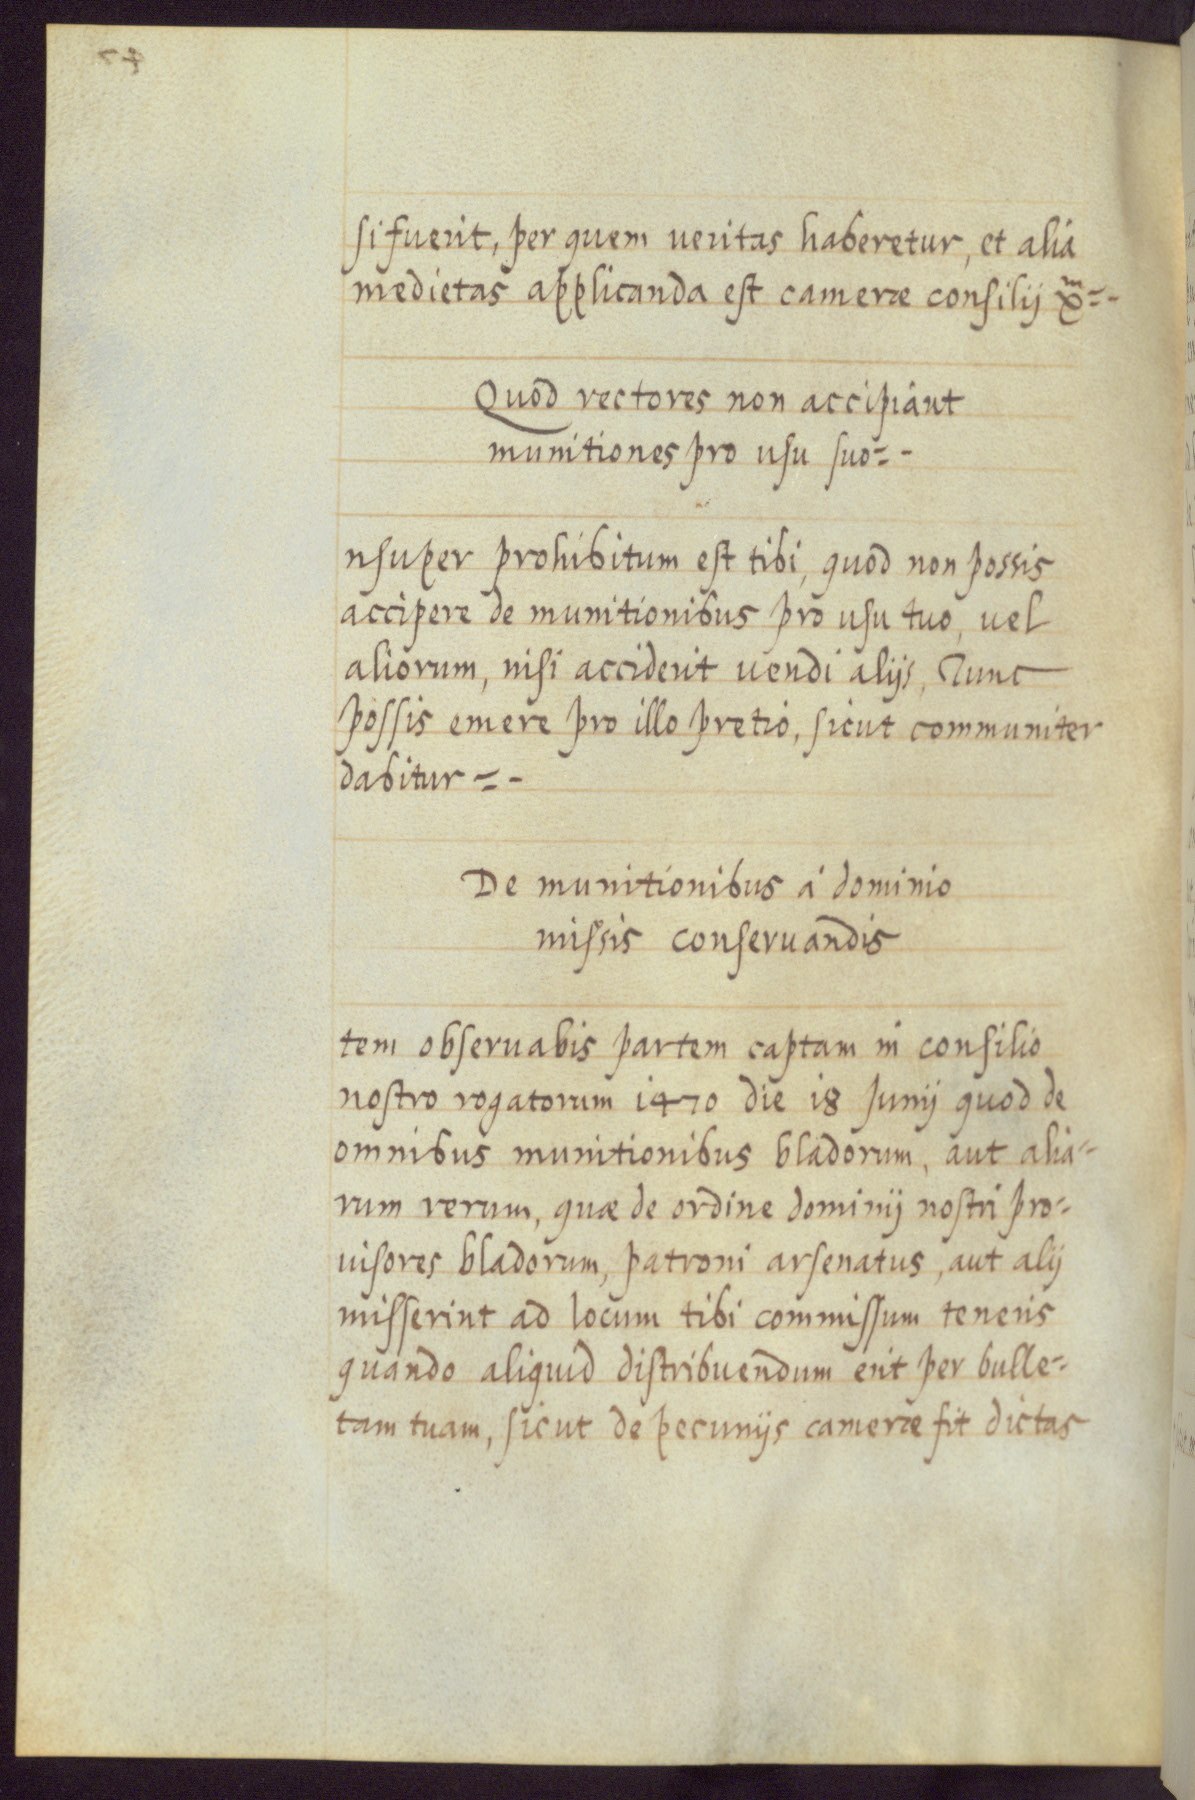 si fuerit, per quem veritas haberetur, et alia
medietas applicanda est camerae consilij Xm=-
Quod rectores non accipiant
munitiones pro usu suo=-
nsuper prohibitum est tibi, quod non possis
accipere de munitionibus pro usu tuo, uel
aliorum, nisi acciderit uendi alijs, Tunc
possis emere pro illo pretio, sicut communiter
dabitur =-
De munitionibus à dominio
missis conseruandis
tem obseruabis partem captam in consilio
nostro rogatorum 1470 die 18 Junij quod de
omnibus munitionibus bladorum, aut alia=
rum rerum, quae de ordine dominij nostri pro=
uisores bladorum, patroni arsenatus, aut alij
misserint ad locum tibi commissum teneris
quando aliquid distribuendum erit per bulle=
tam tuam, sicut de pecunijs camerae fit dictas